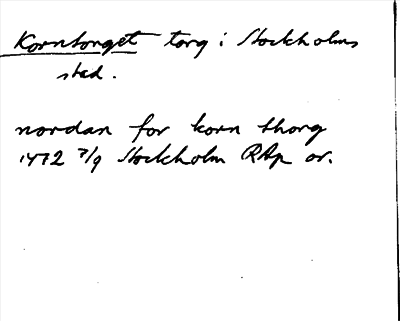 Korntorget torg i Stockholms
stad.
nordan for korn thorg
1472 7/9 Stockholm RAp or.